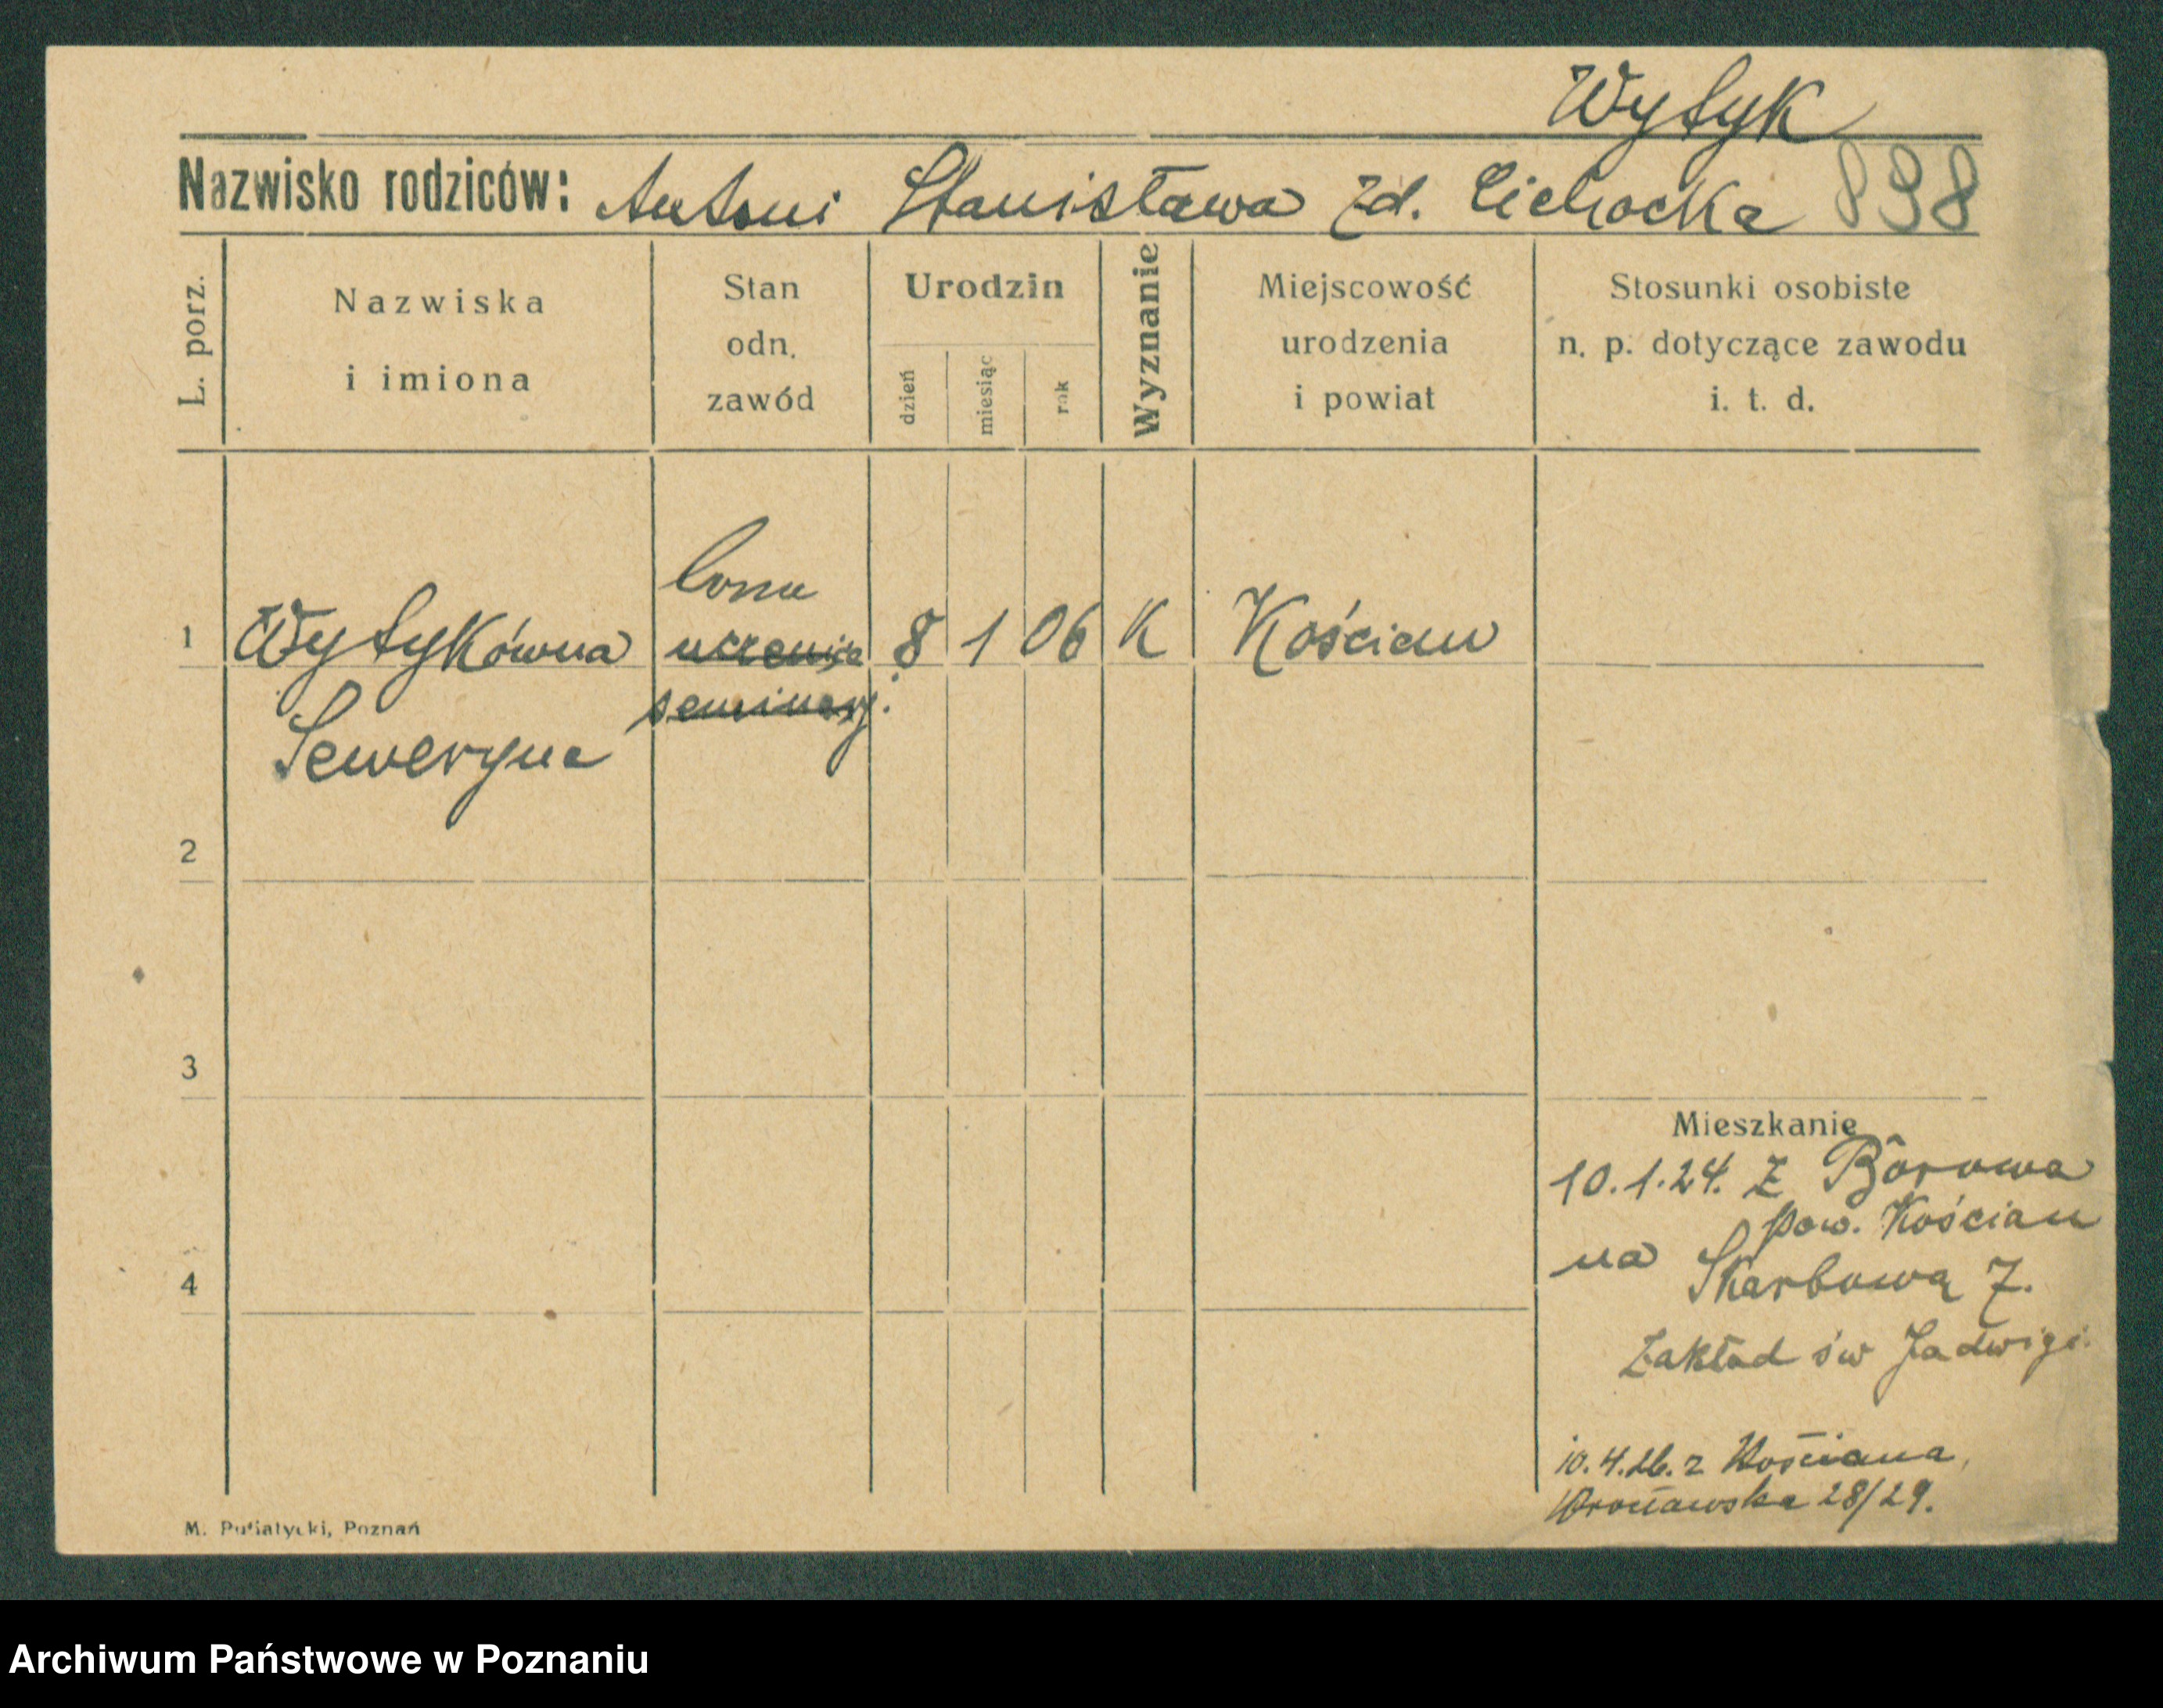 Wytyk
Nazwisko rodziców: Antoni Stanisława zd. Cichocka 898
L. porz.
Nazwiska
i imiona
Stan
odn.
zawód
Urodzin
dzień
miesiąc
rok
Wyznanie
Miejscowość
urodzenia
i powiat
Stosunki osobiste
n. p. dotyczące zawodu
i. t. d.
1 Wytykówna uczenica 8 1 06 K Kościan
Seweryna seminarj.
2
3
4
Mieszkanie
10.1.24. Z Borowa
pow. Kościan
na Skarbową 7.
Zakład św Jadwigi.
10.4.26. z Kościana,
Wrocławska 28/29.
M. Putiatycki, Poznań
Archiwum Państwowe w Poznaniu